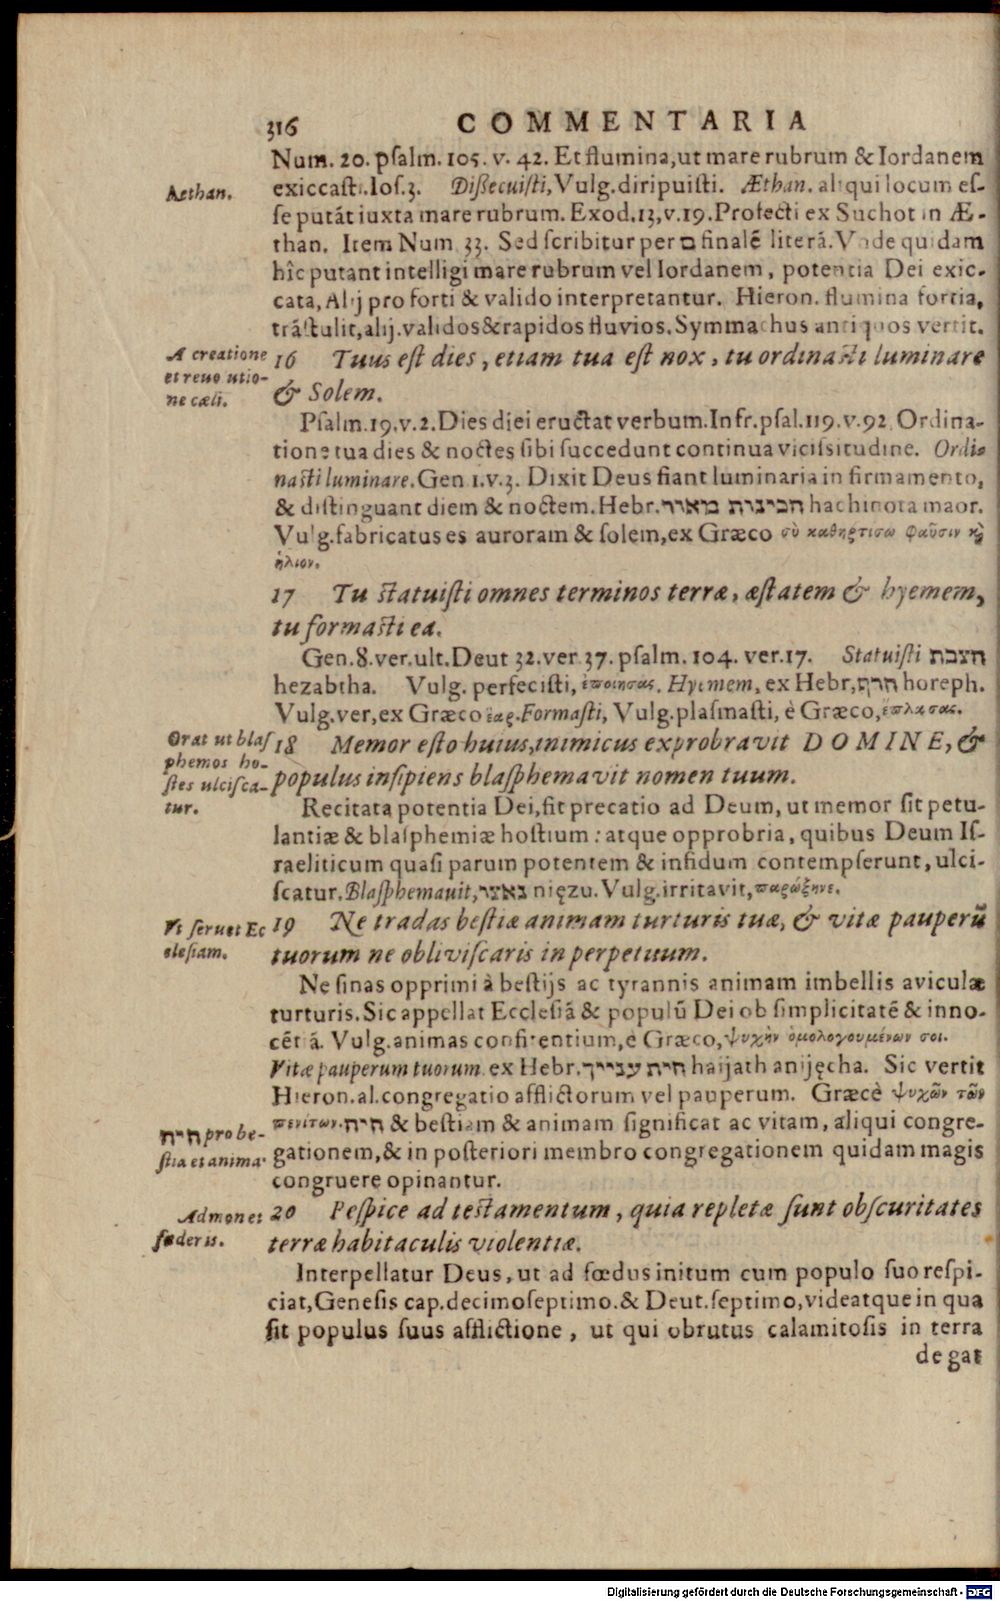 316 COMMENTARIA
Num. 20. psalm. 105. v. 42. Et flumina, ut mare rubrum & Iordanem
Aethan.
exiccasti. Ios. 3. Dißecuisti, Vulg. diripuisti. Æthan. aliqui locum es-
se putāt iuxta mare rubrum. Exod. 13, v. 19. Profecti ex Suchot in Æ-
than. Item Num. 33. Sed scribitur per ם finalē literā. Vnde quidam
hîc putant intelligi mare rubrum vel Iordanem, potentia Dei exic-
cata, Alij pro forti & valido interpretantur. Hieron. flumina fortia,
trāstulit, alij. validos & rapidos fluvios. Symmachus antiquos vertit.
A creatione
et revolutio-
ne cæli.
16 Tuus est dies, etiam tua est nox, tu ordinasti luminare
& Solem.
Psalm. 19. v. 2. Dies diei eructat verbum. Infr. psal. 119. v. 92. Ordina-
tione tua dies & noctes sibi succedunt continua vicissitudine. Ordi-
nasti luminare. Gen 1. v. 3. Dixit Deus fiant luminaria in firmamento,
& distinguant diem & noctem. Hebr. הכינות מאור hachinota maor.
Vulg. fabricatus es auroram & solem, ex Græco σὺ καθηρτίσω φαῦσιν κὴ
ἥλιον.
17 Tu statuisti omnes terminos terræ, æstatem & hyemem,
tu formasti ea.
Gen. 8. ver. ult. Deut 32. ver. 37. psalm. 104. ver. 17. Statuisti הצבת
hezabtha. Vulg. perfecisti, ἐποίησας. Hyemem, ex Hebr, חרף horeph.
Vulg. ver, ex Græco ἔαρ. Formasti, Vulg. plasmasti, è Græco, ἔπλασας.
Orat ut blas
phemos ho-
stes ulcisca-
tur.
18 Memor esto huius, inimicus exprobravit DOMINE, &
populus insipiens blasphemavit nomen tuum.
Recitata potentia Dei, fit precatio ad Deum, ut memor sit petu-
lantiæ & blasphemiæ hostium: atque opprobria, quibus Deum Is-
raeliticum quasi parum potentem & infidum contempserunt, ulci-
scatur. Blasphemauit, נאצו nięzu. Vulg. irritavit, παρώξηνε.
Vt seruet Ec
clesiam.
19 Ne tradas bestiæ animam turturis tuæ, & vitæ pauperū
tuorum ne obliviscaris in perpetuum.
Ne sinas opprimi à bestijs ac tyrannis animam imbellis aviculæ
turturis. Sic appellat Ecclesiā & populū Dei ob simplicitatē & inno-
cētiā. Vulg. animas confitentium, è Græco, ψυχὴν ὁμολογουμένων σοι.
Vitæ pauperum tuorum. ex Hebr. חית ענייך haijath anijęcha. Sic vertit
Hieron. al. congregatio afflictorum vel pauperum. Græcè ψυχῶν τῶν
πενίτων. חית & bestiam & animam significat ac vitam, aliqui congre-
חית pro be-
stia et anima.
gationem, & in posteriori membro congregationem quidam magis
congruere opinantur.
Admonet
fœderis.
20 Respice ad testamentum, quia repletæ sunt obscuritates
terræ habitaculis violentiæ.
Interpellatur Deus, ut ad fœdus initum cum populo suo respi-
ciat, Genesis cap. decimoseptimo. & Deut. septimo, videatque in qua
sit populus suus afflictione, ut qui obrutus calamitosis in terra
degat
Digitalisierung gefördert durch die Deutsche Forschungsgemeinschaft - DFG